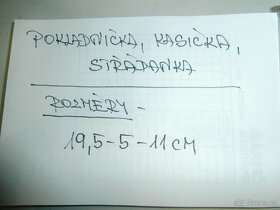 POKLADNIČKA, KASIČKA,
STŘÁDANKA
ROZMĚRY -
19,5-5-11 CM
Bazos.cz